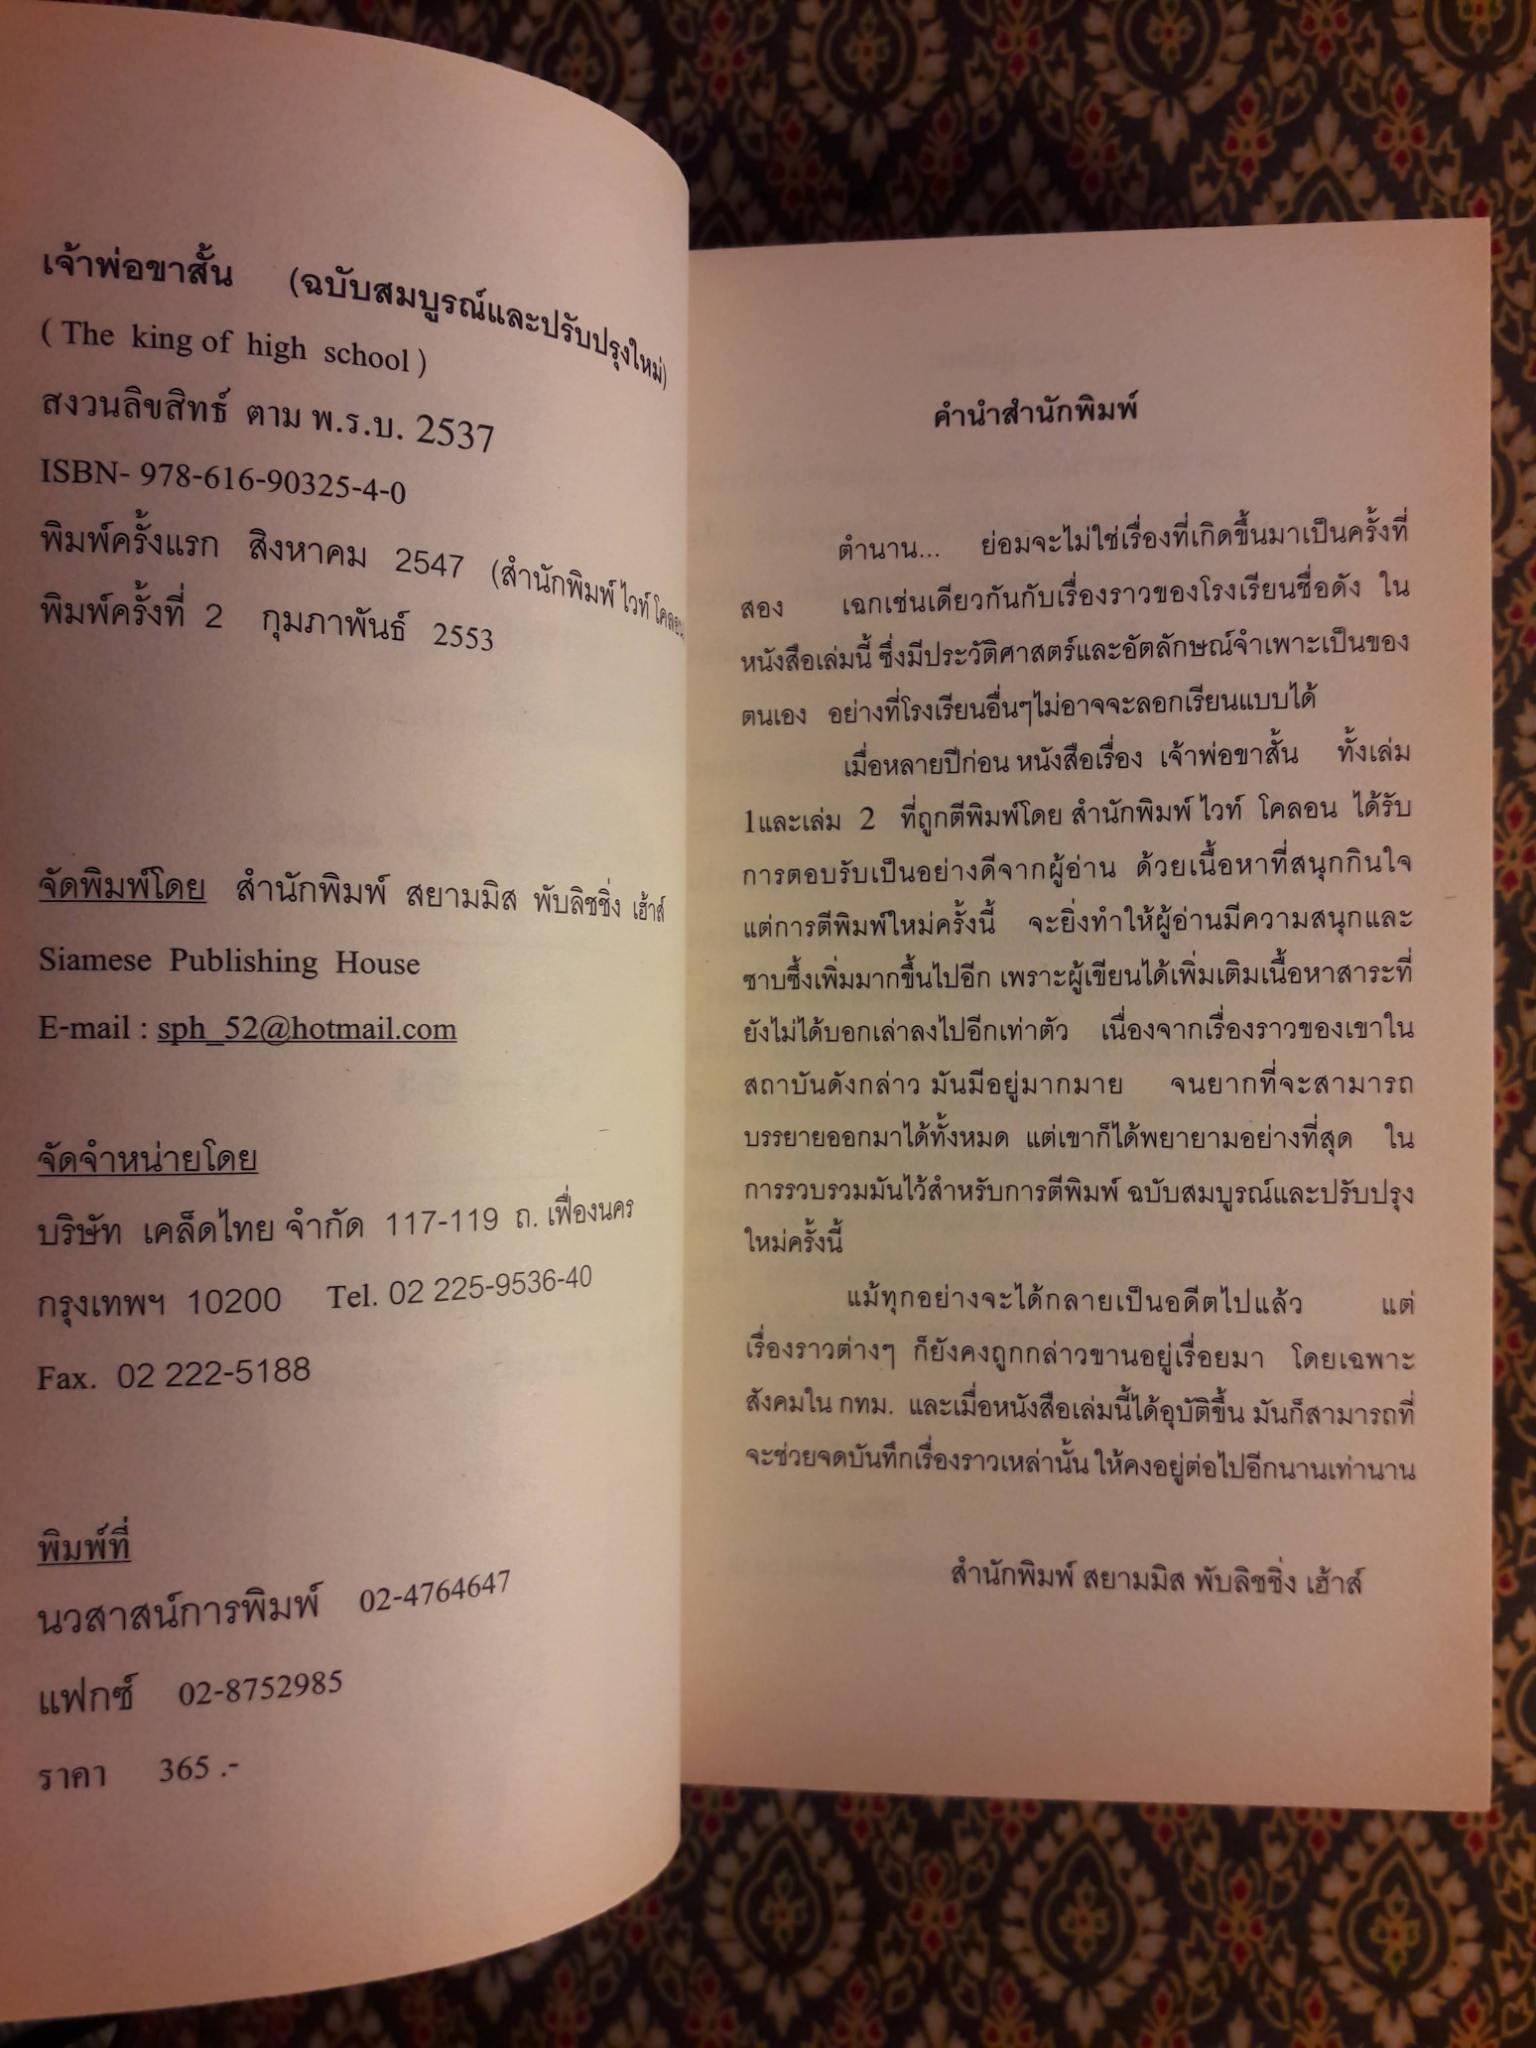 เจ้าพ่อขาสั้น (ฉบับสมบูรณ์และปรับปรุงใหม่)
( The king of high school )
สงวนลิขสิทธ์ ตาม พ.ร.บ. 2537
ISBN- 978-616-90325-4-0
พิมพ์ครั้งแรก สิงหาคม 2547 (สำนักพิมพ์ ไวท์ โคลอน
พิมพ์ครั้งที่ 2 กุมภาพันธ์ 2553
จัดพิมพ์โดย สำนักพิมพ์ สยามมิส พับลิชชิ่ง เฮ้าส์
Siamese Publishing House
E-mail : sph_52@hotmail.com
จัดจำหน่ายโดย
บริษัท เคล็ดไทย จำกัด 117-119 ถ. เฟื่องนคร
กรุงเทพฯ 10200 Tel. 02 225-9536-40
Fax. 02 222-5188
พิมพ์ที่
นวสาสน์การพิมพ์ 02-4764647
แฟกซ์ 02-8752985
ราคา 365 .-
คำนำสำนักพิมพ์
ตำนาน... ย่อมจะไม่ใช่เรื่องที่เกิดขึ้นมาเป็นครั้งที่
สอง เฉกเช่นเดียวกันกับเรื่องราวของโรงเรียนชื่อดัง ใน
หนังสือเล่มนี้ ซึ่งมีประวัติศาสตร์และอัตลักษณ์จำเพาะเป็นของ
ตนเอง อย่างที่โรงเรียนอื่นๆไม่อาจจะลอกเรียนแบบได้
เมื่อหลายปีก่อน หนังสือเรื่อง เจ้าพ่อขาสั้น ทั้งเล่ม
1และเล่ม 2 ที่ถูกตีพิมพ์โดย สำนักพิมพ์ ไวท์ โคลอน ได้รับ
การตอบรับเป็นอย่างดีจากผู้อ่าน ด้วยเนื้อหาที่สนุกกินใจ
แต่การตีพิมพ์ใหม่ครั้งนี้ จะยิ่งทำให้ผู้อ่านมีความสนุกและ
ซาบซึ้งเพิ่มมากขึ้นไปอีก เพราะผู้เขียนได้เพิ่มเติมเนื้อหาสาระที่
ยังไม่ได้บอกเล่าลงไปอีกเท่าตัว เนื่องจากเรื่องราวของเขาใน
สถาบันดังกล่าว มันมีอยู่มากมาย จนยากที่จะสามารถ
บรรยายออกมาได้ทั้งหมด แต่เขาก็ได้พยายามอย่างที่สุด ใน
การรวบรวมมันไว้สำหรับการตีพิมพ์ ฉบับสมบูรณ์และปรับปรุง
ใหม่ครั้งนี้
แม้ทุกอย่างจะได้กลายเป็นอดีตไปแล้ว แต่
เรื่องราวต่างๆ ก็ยังคงถูกกล่าวขานอยู่เรื่อยมา โดยเฉพาะ
สังคมใน กทม. และเมื่อหนังสือเล่มนี้ได้อุบัติขึ้น มันก็สามารถที่
จะช่วยจดบันทึกเรื่องราวเหล่านั้น ให้คงอยู่ต่อไปอีกนานเท่านาน
สำนักพิมพ์ สยามมิส พับลิชชิ่ง เฮ้าส์